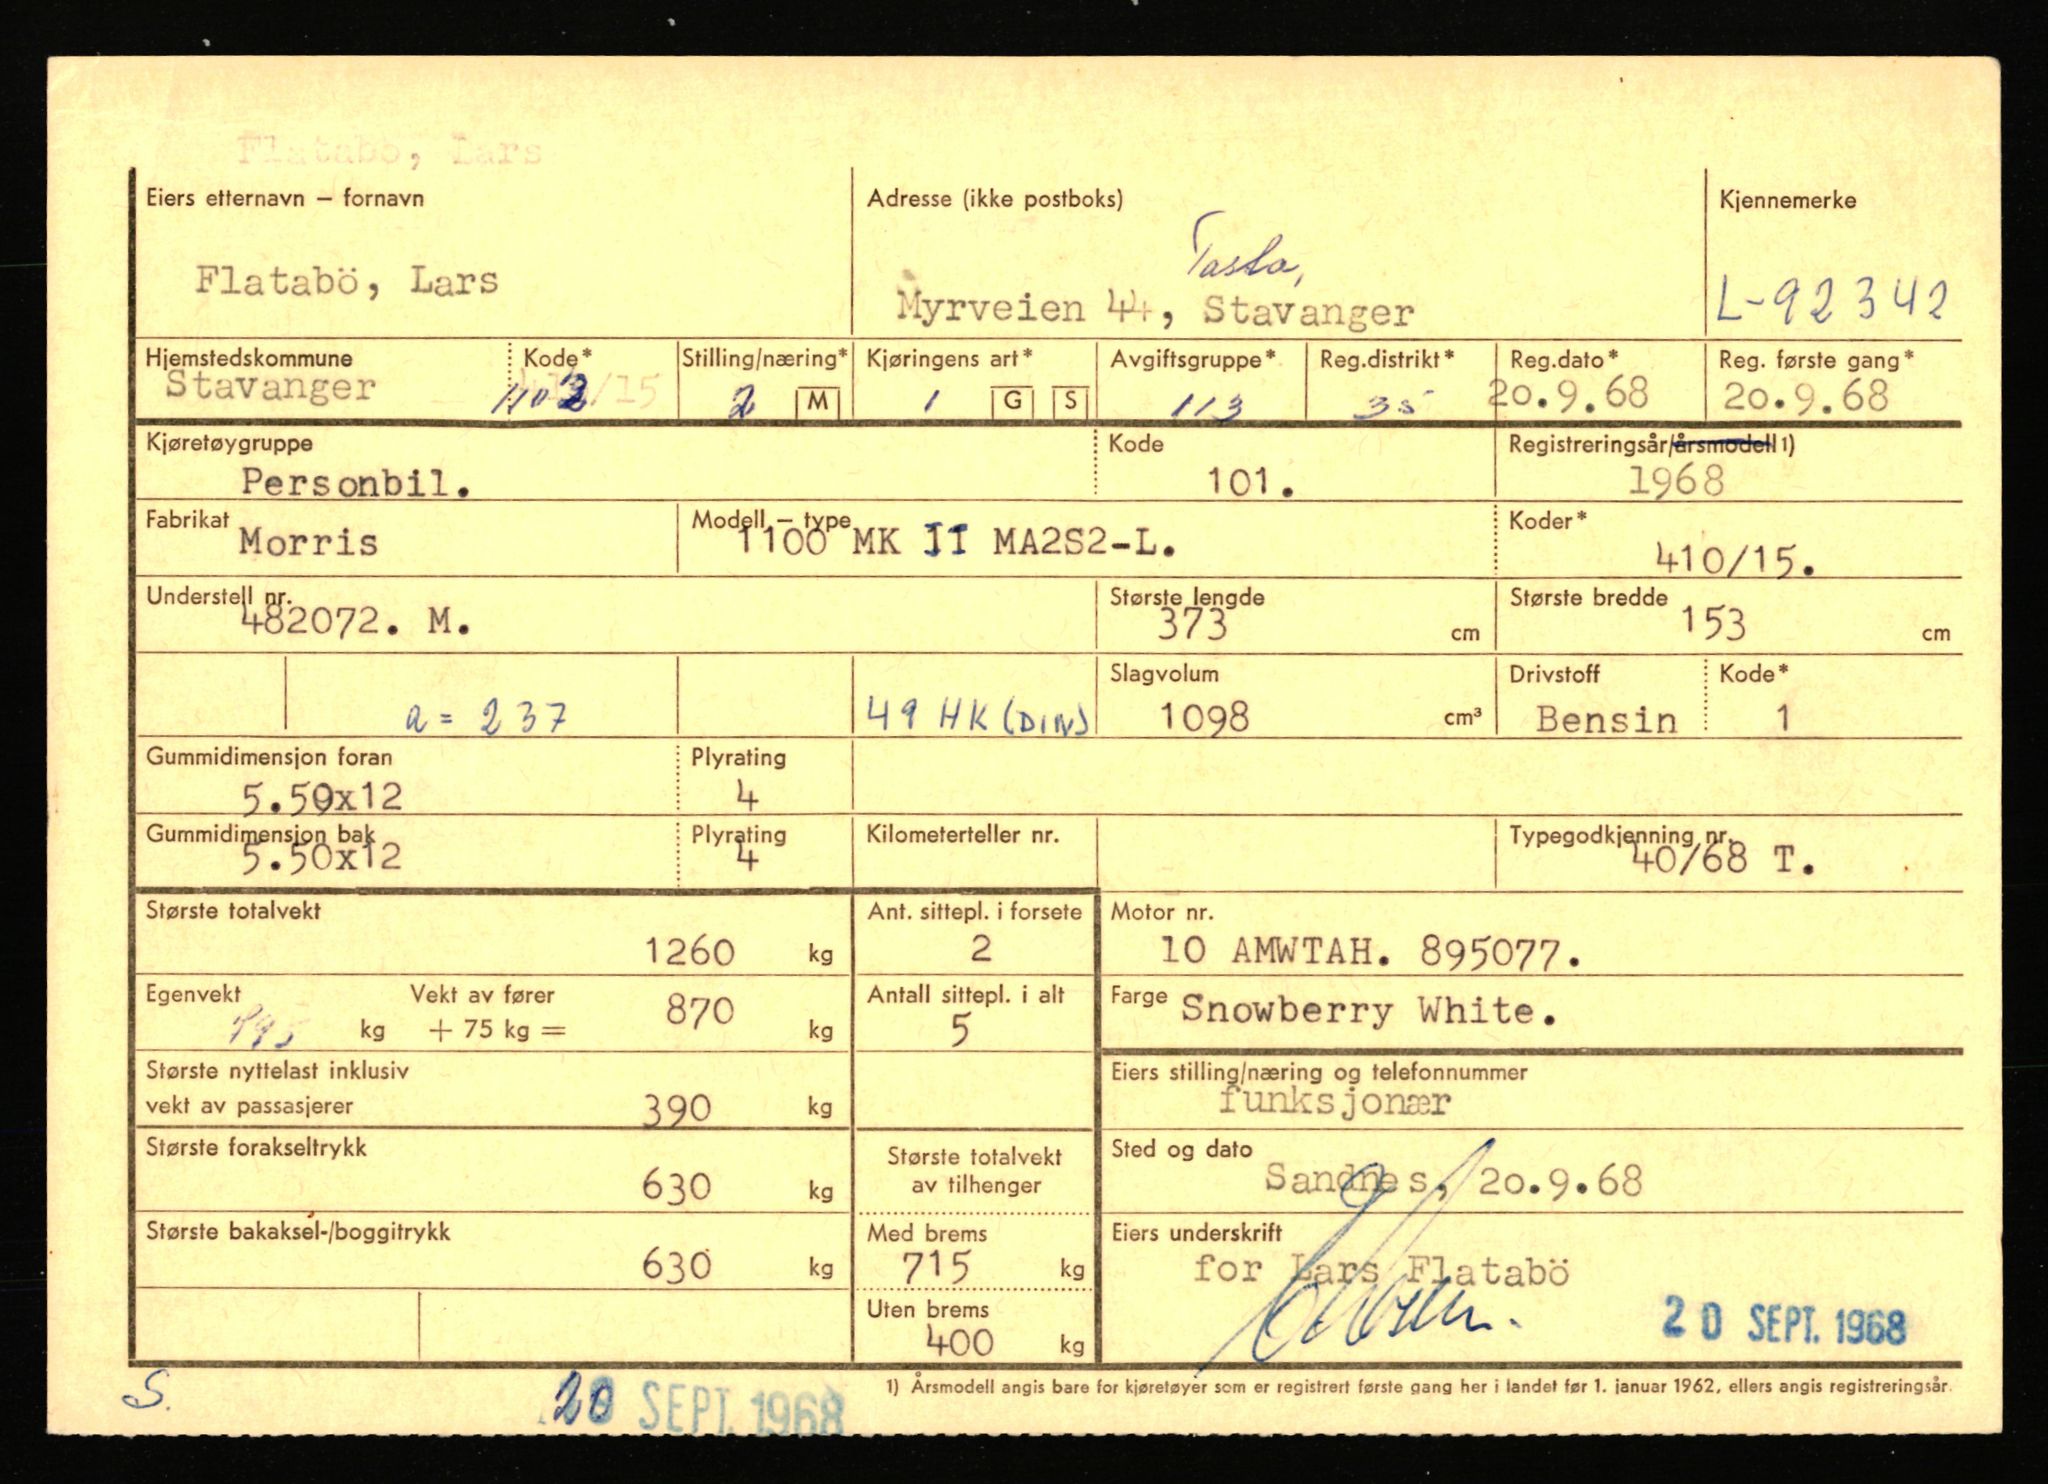 Flatabö, Lars
Eiers etternavn – fornavn
Adresse (ikke postboks)
Kjennemerke
Flatabö, Lars
Tasta,
Myrveien 44, Stavanger
L-92342
Hjemstedskommune Kode* Stilling/næring* Kjøringens art* Avgiftsgruppe* Reg.distrikt* Reg.dato* Reg. første gang*
Stavanger 1103 2 M 1 G S 113 35 20.9.68 20.9.68
Kjøretøygruppe Kode Registreringsår/årsmodell 1)
Personbil. 101. 1968
Fabrikat Modell – type Koder*
Morris 1100 MK II MA2S2-L. 410/15.
Understell nr. Største lengde Største bredde
482072. M. 373 cm 153 cm
Slagvolum Drivstoff Kode*
a = 237 49 HK (DIN) 1098 cm³ Bensin 1
Gummidimensjon foran Plyrating
5.50x12 4
Gummidimensjon bak Plyrating Kilometerteller nr. Typegodkjenning nr.
5.50x12 4 40/68 T.
Største totalvekt Ant. sittepl. i forsete Motor nr.
1260 kg 2 10 AMWTAH. 895077.
Egenvekt Vekt av fører Antall sittepl. i alt Farge Snowberry White.
795 kg + 75 kg = 870 kg 5
Største nyttelast inklusiv Eiers stilling/næring og telefonnummer
vekt av passasjerer 390 kg funksjonær
Største forakseltrykk Største totalvekt Sted og dato
630 kg av tilhenger Sandnes, 20.9.68
Største bakaksel-/boggitrykk Med brems Eiers underskrift
630 kg 715 kg for Lars Flatabö
Uten brems
400 kg
20 SEPT. 1968
1) Årsmodell angis bare for kjøretøyer som er registrert første gang her i landet før 1. januar 1962, ellers angis registreringsår.
S.
20 SEPT. 1968